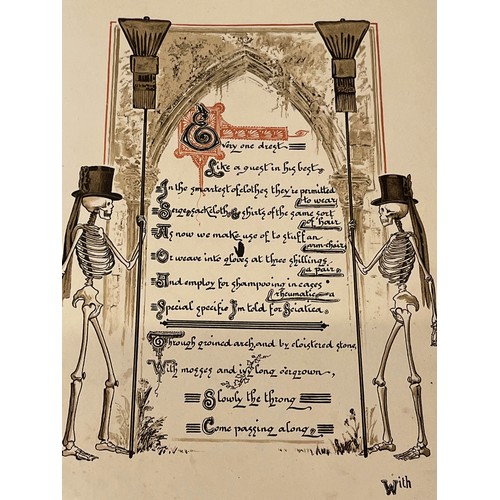 Every one drest
Like a guest in his best,
In the smartest of clothes they're permitted
to wear
Serge, sackcloth & shirts of the same sort
of hair
As now we make use of to stuff an
arm-chair,
Or weave into gloves at three shillings
a pair,
And employ for shampooing in cases
rheumatic—a
Special specific I'm told for Sciatica.
Through groined arch, and by cloistered stone,
With mosses and ivy long o'ergrown,
Slowly the throng
Come passing along,
With